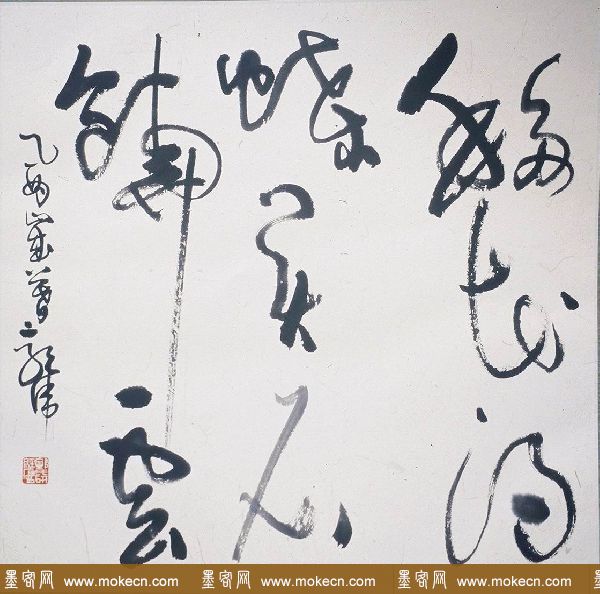 移花得
蝶買石
饒雲
乙酉歲暮
墨客网 www.mokecn.com 墨客网 www.mokecn.com 墨客网 www.mokecn.com